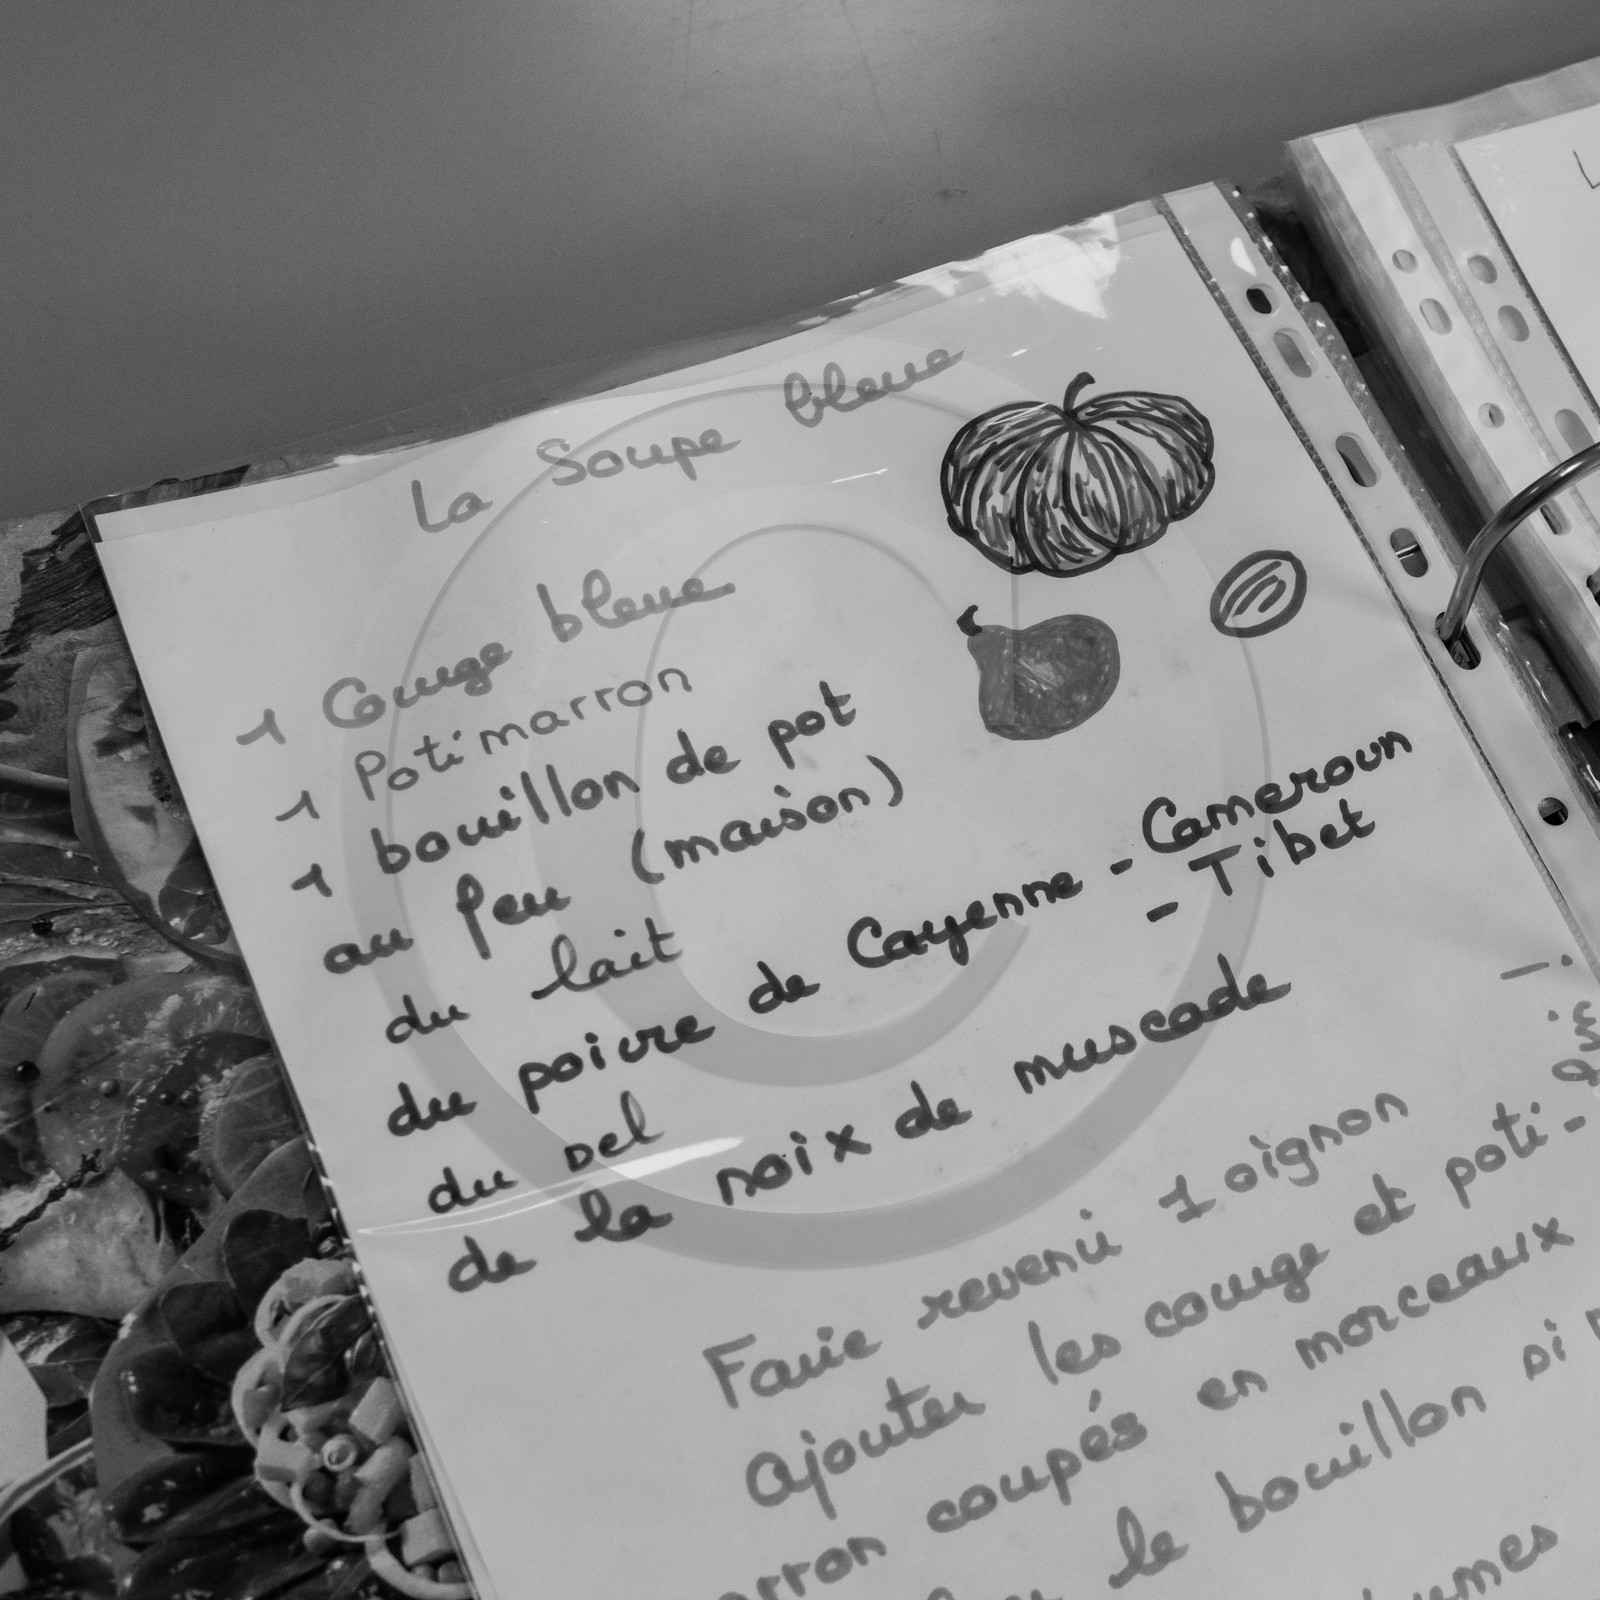 La Soupe bleue
1 Courge bleue
1 Potimarron
1 bouillon de pot
au feu (maison)
du lait
du poivre de Cayenne - Cameroun
- Tibet
du sel
de la noix de muscade
Faire revenir 1 oignon
Ajouter les courge et poti-
rron coupés en morceaux
le bouillon si